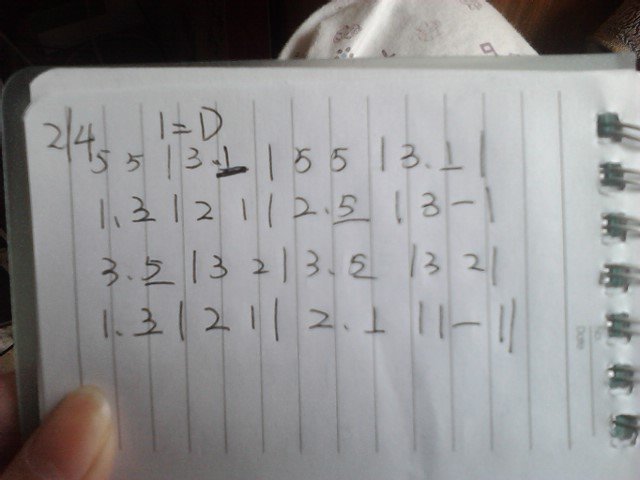 2/4 1=D
5 5 | 3.1 | 5 5 | 3.1 |
1.3 | 2 1 | 2.5 | 3 - |
3.5 | 3 2 | 3.5 | 3 2 |
1.3 | 2 1 | 2.1 | 1 - ||
No.
Date